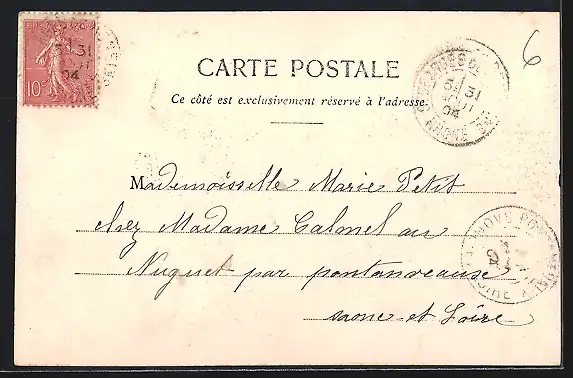 6
10
31
04
CARTE POSTALE
Ce côté est exclusivement réservé à l'adresse.
31
04
RHONE
Mademoisselle Marie Petit
chez Madame Calmel au
Nuguet par pontanveause
saone-et Loire
LOIRE